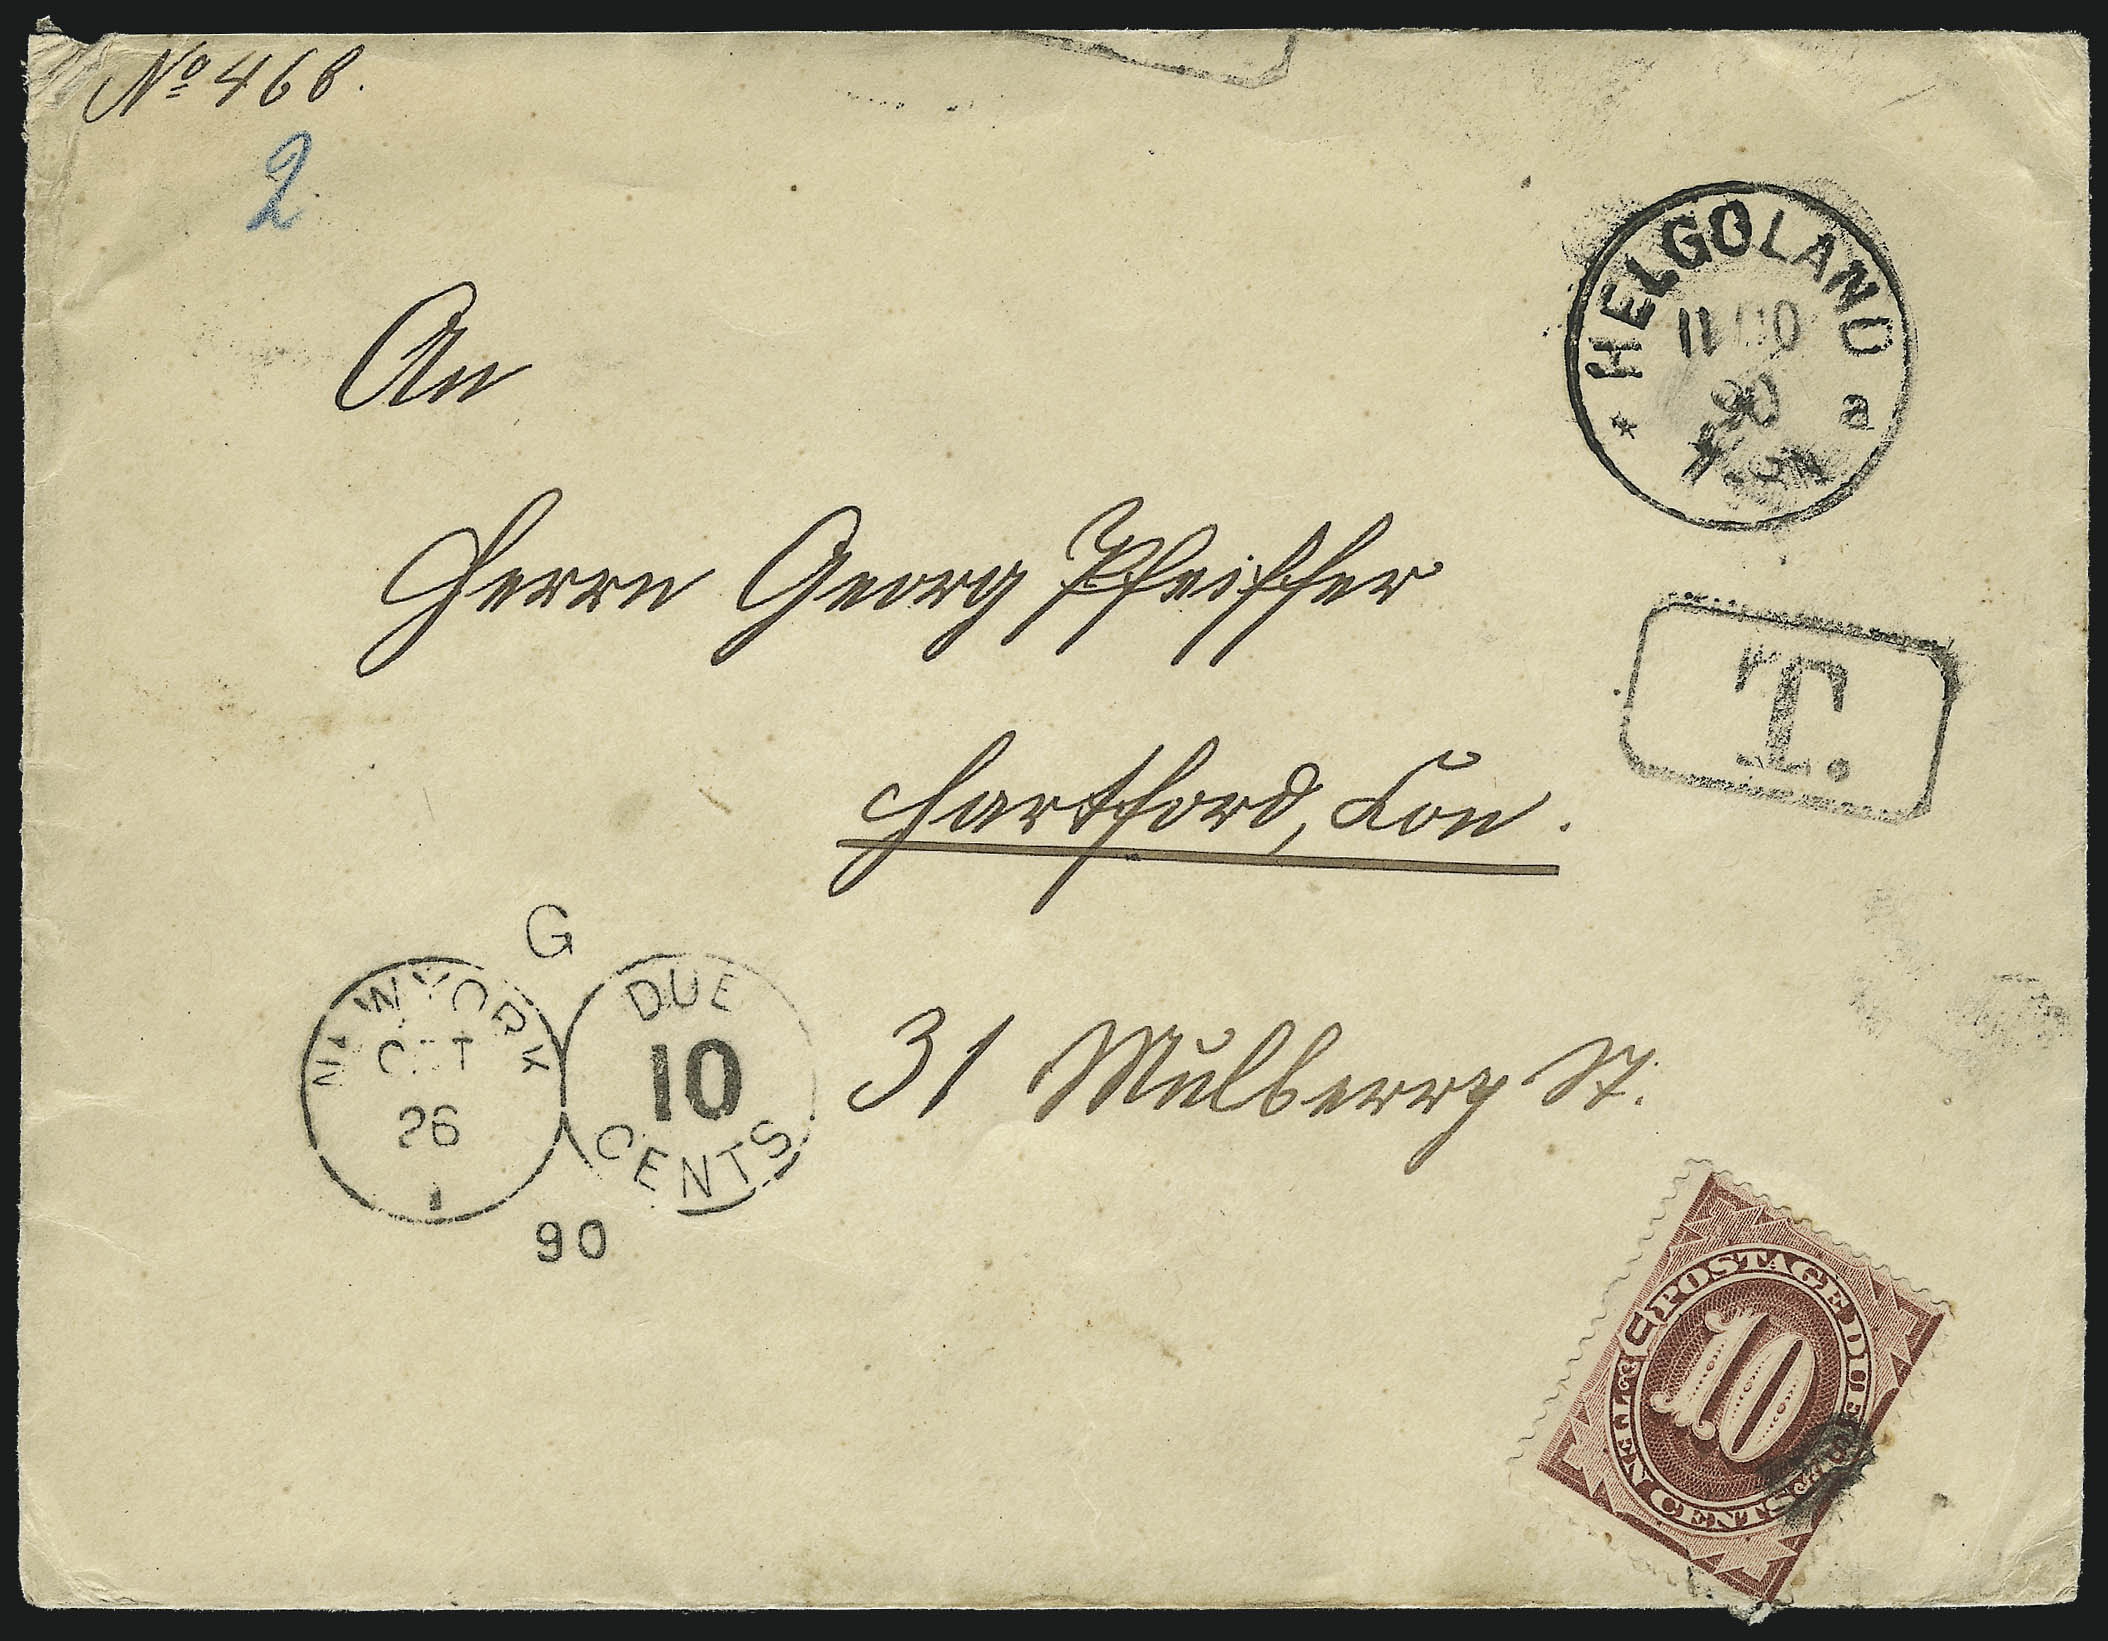 No 468.
2
HELGOLAND
a
90
T.
An
Herrn Georg Pfeiffer
Hartford, Con.
31 Mulberry St.
G
NEW YORK
OCT
26
90
DUE
10
CENTS
U.S. POSTAGE DUE
10
TEN CENTS